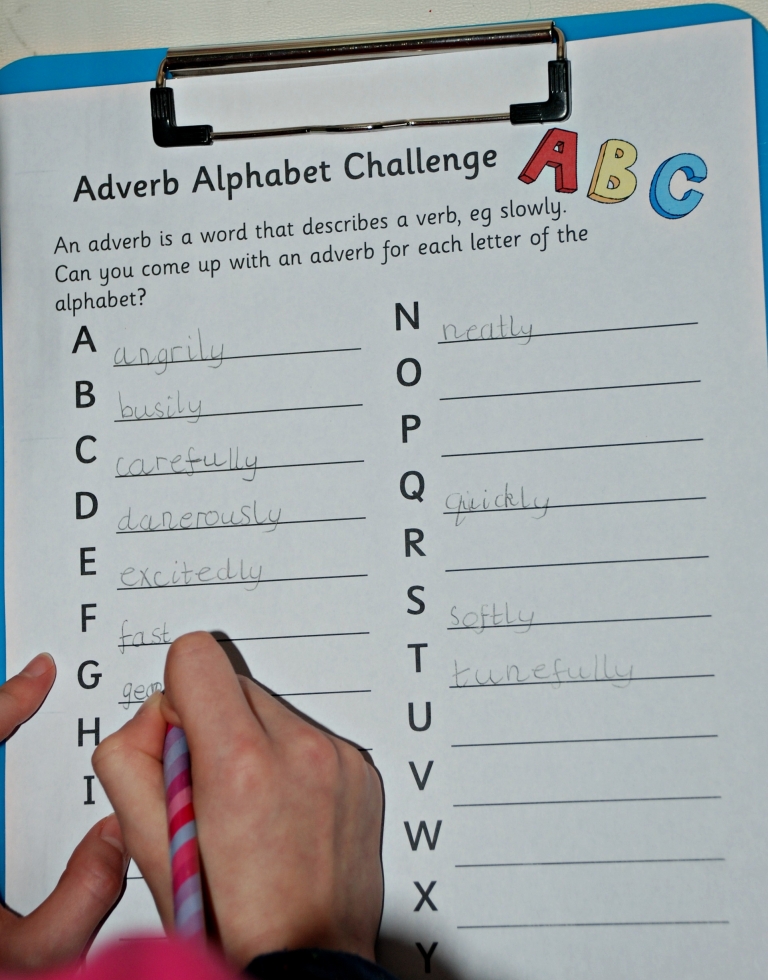 Adverb Alphabet Challenge ABC
An adverb is a word that describes a verb, eg slowly.
Can you come up with an adverb for each letter of the
alphabet?
A angrily
B busily
C carefully
D danerously
E excitedly
F fast
G
H
I
N neatly
O
P
Q quickly
R
S softly
T tunefully
U
V
W
X
Y